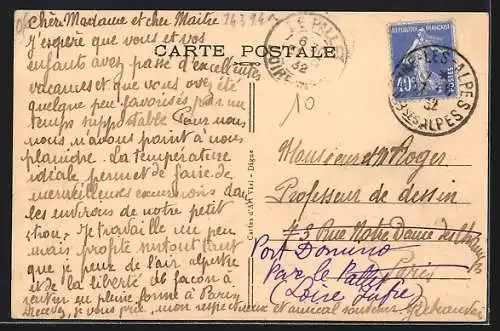 Chère Madame et cher Maître
J'espère que vous et vos
enfants avez passé d'excellentes
vacances et que vous avez été
quelque peu favorisés par un
temps supportable Pour nous
nous n'avons point à nous
plaindre. La température
idéale permet de faire de
merveilleuses excursions dans
les environs de notre petit
Je travaille un peu
mais profite surtout tant
que je peux de l'air alpestre
et de la liberté de façon à
rentrer en pleine forme à Paris
Recevez, je vous prie, mon respectueux et amical souvenir
CARTE POSTALE
LE PALLET
32
10
Cartes d'Art - Digne
40c
POSTES
ALPES
BSES ALPES
32
Monsieur Roger
Professeur de dessin
73 Rue Notre Dame des Champs
Paris
Port Domino
Par le Pallet
(Loire Infre)